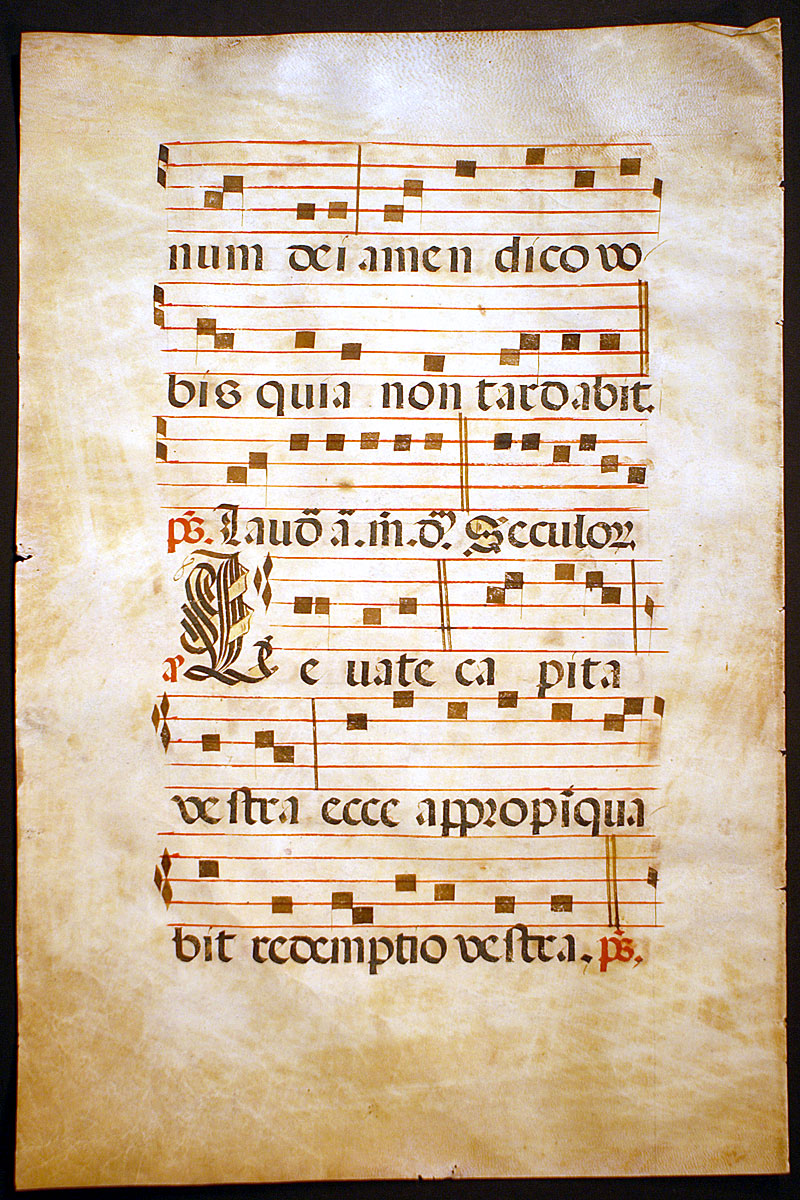 num dei amen dico vo
bis quia non tardabit.
ps. Laudā ā. m̄. dn̄. Seculor
a Le uate ca pita
vestra ecce appropīqua
bit redemptio vestra. ps.